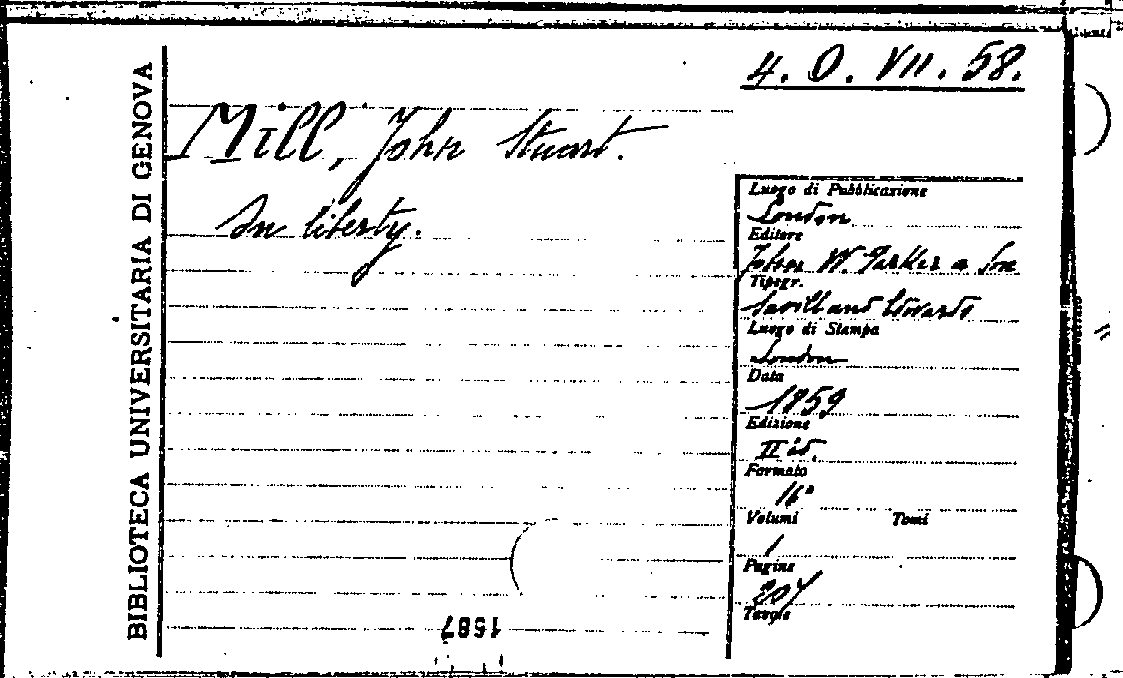 4. O. VII. 58.
BIBLIOTECA UNIVERSITARIA DI GENOVA
Mill, John Stuart.
On liberty.
Luogo di Pubblicazione
London
Editore
John W. Parker a Son
Tipogr.
Savill and Edwards
Luogo di Stampa
London
Data
1859
Edizione
II ed.
Formato
16°
Volumi Tomi
1
Pagine
204
Tavole
1587